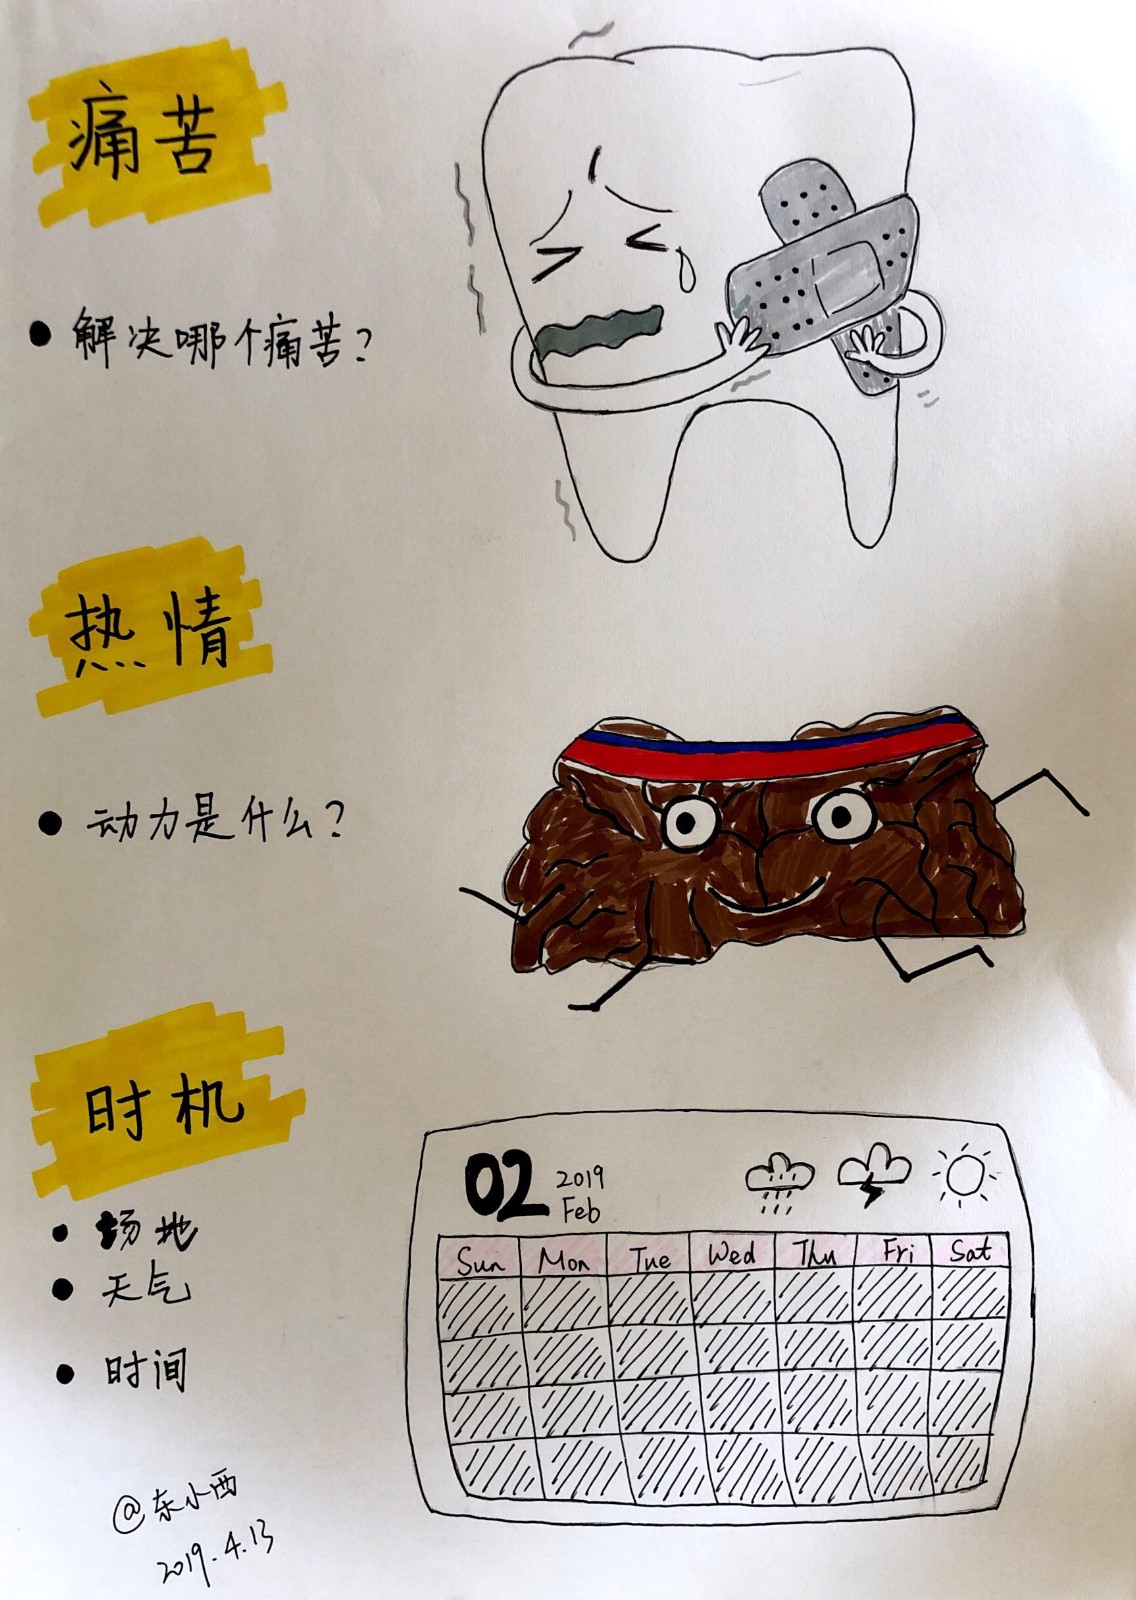 痛苦
● 解决哪个痛苦？
热情
● 动力是什么？
时机
● 场地
● 天气
● 时间
02 2019
Feb
Sun Mon Tue Wed Thu Fri Sat
@东小西
2019.4.13